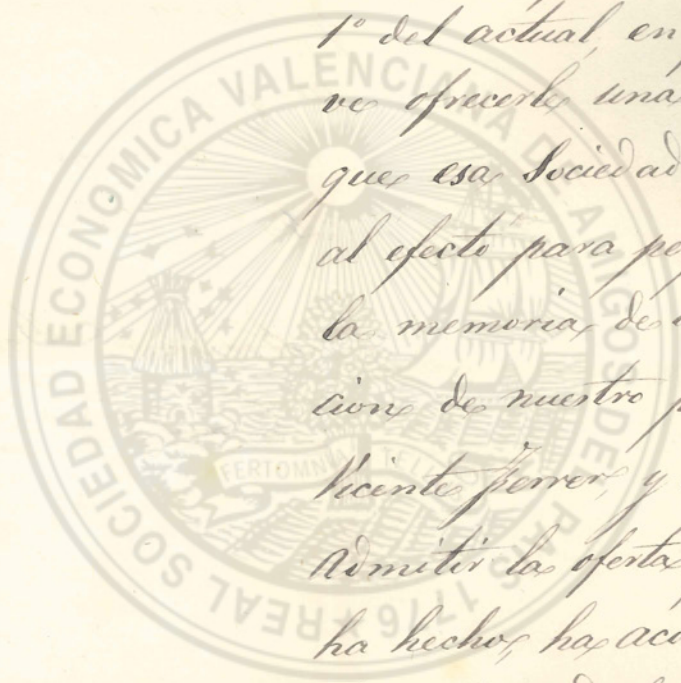 1º del actual, en
ve ofrecerle una
que esa Sociedad
al efecto para pe
la memoria de
cion de nuestro p
Vicente Ferrer, y
admitir la oferta
ha hecho, ha aco
REAL SOCIEDAD ECONOMICA VALENCIANA DE AMIGOS DEL PAIS 1776
FERT OMNIA TELLUS